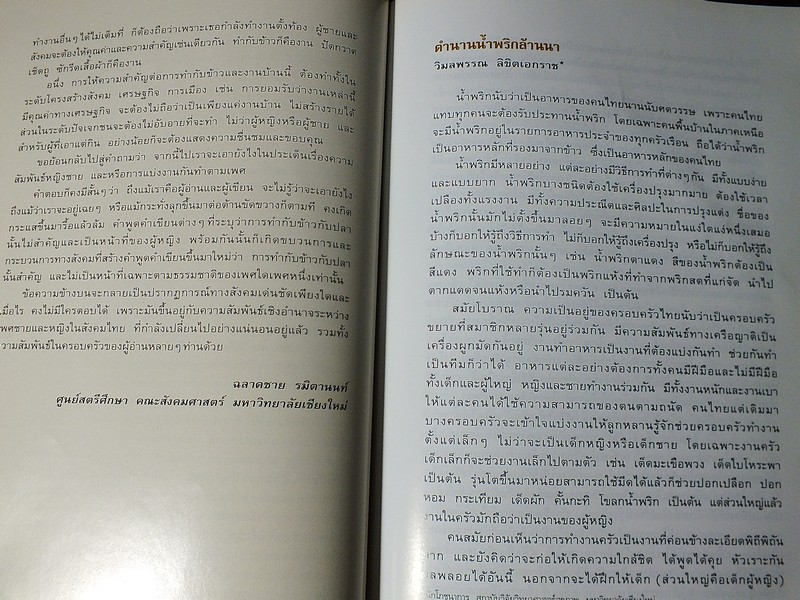 ทำงานอื่นๆ ได้ไม่เต็มที่ ก็ต้องถือว่าเพราะเธอกำลังทำงานตั้งท้อง ผู้ชายและ
สังคมจะต้องให้คุณค่าและความสำคัญเช่นเดียวกัน ทำกับข้าวก็คืองาน ปัดกวาด
เช็ดถู ซักรีดเสื้อผ้าก็คืองาน
อนึ่ง การให้ความสำคัญต่อการทำกับข้าวและงานบ้านนี้ ต้องทำทั้งใน
ระดับโครงสร้างสังคม เศรษฐกิจ การเมือง เช่น การยอมรับว่างานเหล่านี้
มีคุณค่าทางเศรษฐกิจ จะต้องไม่ถือว่าเป็นเพียงแค่งานบ้าน ไม่สร้างรายได้
ส่วนในระดับปัจเจกชนจะต้องไม่อับอายที่จะทำ ไม่ว่าผู้หญิงหรือผู้ชาย และ
สำหรับผู้ที่เอาแต่กิน อย่างน้อยก็จะต้องแสดงความชื่นชมและขอบคุณ
ขอย้อนกลับไปสู่คำถามว่า จากนี้ไปเราจะเอายังไงในประเด็นเรื่องความ
สัมพันธ์หญิงชาย และหรือการแบ่งงานกันทำตามเพศ
คำตอบก็คงมีสั้นๆ ว่า ถึงแม้เราคือผู้อ่านและผู้เขียน จะไม่รู้ว่าจะเอายังไง
ถึงแม้ว่าเราจะอยู่เฉยๆ หรือแม้กระทั่งลุกขึ้นมาต่อต้านขัดขวางก็ตามที คงเกิด
กระแสขึ้นมารื้อแล้วล้ม คำพูดคำเขียนต่างๆ ที่ระบุว่าการทำกับข้าวกับปลา
นั้นไม่สำคัญและเป็นหน้าที่ของผู้หญิง พร้อมกันนั้นก็เกิดขบวนการและ
กระบวนการทางสังคมที่สร้างคำพูดคำเขียนขึ้นมาใหม่ว่า การทำกับข้าวกับปลา
นั้นสำคัญ และไม่เป็นหน้าที่เฉพาะตามธรรมชาติของเพศใดเพศหนึ่งเท่านั้น
ข้อความข้างบนจะกลายเป็นปรากฏการณ์ทางสังคมเด่นชัดเพียงใดและ
เมื่อไร คงไม่มีใครตอบได้ เพราะมันขึ้นอยู่กับความสัมพันธ์เชิงอำนาจระหว่าง
เพศชายและหญิงในสังคมไทย ที่กำลังเปลี่ยนไปอย่างแน่นอนอยู่แล้ว รวมทั้ง
ความสัมพันธ์ในครอบครัวของผู้อ่านหลายๆ ท่านด้วย
ฉลาดชาย รมิตานนท์
ศูนย์สตรีศึกษา คณะสังคมศาสตร์ มหาวิทยาลัยเชียงใหม่
ตำนานน้ำพริกล้านนา
วิมลพรรณ ลิขิตเอกราช*
น้ำพริกนับว่าเป็นอาหารของคนไทยนานนับศตวรรษ เพราะคนไทย
แทบทุกคนจะต้องรับประทานน้ำพริก โดยเฉพาะคนพื้นบ้านในภาคเหนือ
จะมีน้ำพริกอยู่ในรายการอาหารประจำของทุกครัวเรือน ถือได้ว่าน้ำพริก
เป็นอาหารหลักที่รองมาจากข้าว ซึ่งเป็นอาหารหลักของคนไทย
น้ำพริกมีหลายอย่าง แต่ละอย่างมีวิธีการทำที่ต่างๆ กัน มีทั้งแบบง่าย
และแบบยาก น้ำพริกบางชนิดต้องใช้เครื่องปรุงมากมาย ต้องใช้เวลา
เปลืองทั้งแรงงาน มีทั้งความประณีตและศิลปะในการปรุงแต่ง ชื่อของ
น้ำพริกนั้นมักไม่ตั้งขึ้นมาลอยๆ จะมีความหมายในแง่ใดแง่หนึ่งเสมอ
บ้างก็บอกให้รู้ถึงวิธีการทำ ไม่ก็บอกให้รู้ถึงเครื่องปรุง หรือไม่ก็บอกให้รู้ถึง
ลักษณะของน้ำพริกนั้นๆ เช่น น้ำพริกตาแดง สีของน้ำพริกต้องเป็น
สีแดง พริกที่ใช้ทำก็ต้องเป็นพริกแห้งที่ทำจากพริกสดที่แก่จัด นำไป
ตากแดดจนแห้งหรือนำไปรมควัน เป็นต้น
สมัยโบราณ ความเป็นอยู่ของครอบครัวไทยนับว่าเป็นครอบครัว
ขยายที่สมาชิกหลายรุ่นอยู่ร่วมกัน มีความสัมพันธ์ทางเครือญาติเป็น
เครื่องผูกมัดกันอยู่ งานทำอาหารเป็นงานที่ต้องแบ่งกันทำ ช่วยกันทำ
เป็นทีมก็ว่าได้ อาหารแต่ละอย่างต้องการทั้งคนมีฝีมือและไม่มีฝีมือ
ทั้งเด็กและผู้ใหญ่ หญิงและชายทำงานร่วมกัน มีทั้งงานหนักและงานเบา
ให้แต่ละคนได้ใช้ความสามารถของตนตามถนัด คนไทยแต่เดิมมา
บางครอบครัวจะเข้าใจแบ่งงานให้ลูกหลานรู้จักช่วยครอบครัวทำงาน
ตั้งแต่เล็กๆ ไม่ว่าจะเป็นเด็กหญิงหรือเด็กชาย โดยเฉพาะงานครัว
เด็กเล็กก็จะช่วยงานเล็กไปตามตัว เช่น เด็ดมะเขือพวง เด็ดใบโหระพา
เป็นต้น รุ่นโตขึ้นมาหน่อยสามารถใช้มีดได้แล้วก็ช่วยปอกเปลือก ปอก
หอม กระเทียม เด็ดผัก คั้นกะทิ โขลกน้ำพริก เป็นต้น แต่ส่วนใหญ่แล้ว
งานในครัวมักถือว่าเป็นงานของผู้หญิง
คนสมัยก่อนเห็นว่าการทำงานครัวเป็นงานที่ค่อนข้างละเอียดพิถีพิถัน
มาก และยังคิดว่าจะก่อให้เกิดความใกล้ชิด ได้พูดได้คุย หัวเราะกัน
นอกจากจะได้ฝึกให้เด็ก (ส่วนใหญ่คือเด็กผู้หญิง)